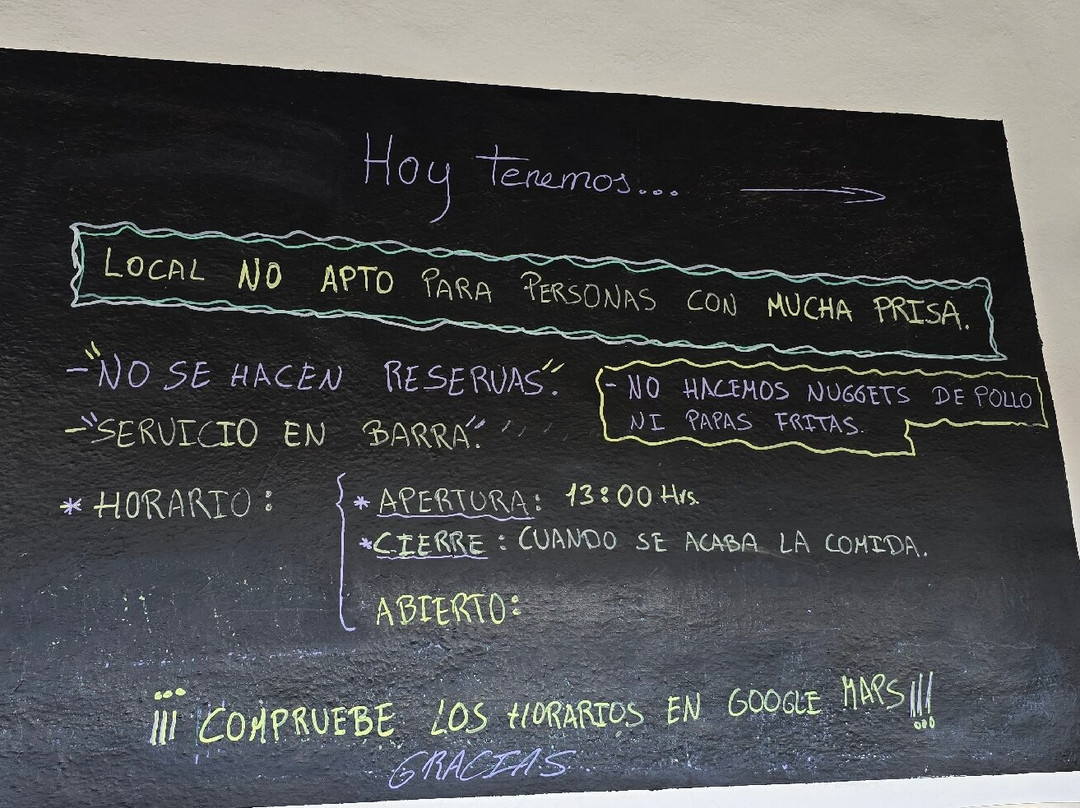 Hoy tenemos...
LOCAL NO APTO PARA PERSONAS CON MUCHA PRISA.
- "NO SE HACEN RESERVAS".
- "SERVICIO EN BARRA".
- NO HACEMOS NUGGETS DE POLLO
NI PAPAS FRITAS.
* HORARIO:
* APERTURA: 13:00 Hrs.
* CIERRE: CUANDO SE ACABA LA COMIDA.
ABIERTO:
¡¡¡ COMPRUEBE LOS HORARIOS EN GOOGLE MAPS!!!
GRACIAS